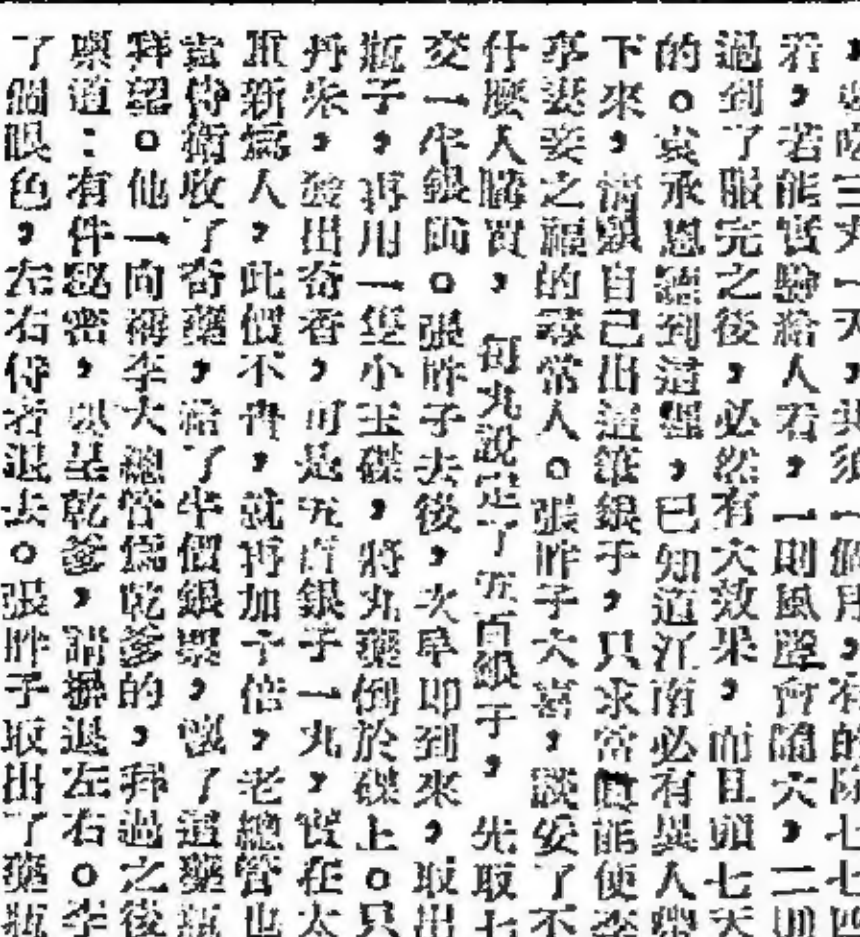 吃三丸一天，共須一個月，有的除七七四
若，若能實驗給人看，一則風聲會鬧大，二則
過到了服完之後，必然有大效果，而且頭七天
的。袁承恩聽到這裡，已知道江南必有異人
下來，情願自己出這筆銀子，只求當能使李
享妻妾之福的尋常人。張昨子大喜，談妥了不
什麼人購買，每丸說定了五百銀子，先取七
交一半銀両。張昨子去後，次早即到來，取出
瓶子，再用一隻小玉碟，將丸藥倒於碟上。只
丹朱，發出奇香，可是五百銀子一丸，實在太
重新為人，此價不貴，就再加十倍，老總管也
當侍衛收了奇藥，給了半價銀票，懷了這藥瓶
拜望。他一向稱李大總管為乾爹的，拜過之後
稟道：有件秘密，要呈乾爹，請摒退左右。李
了個眼色，左右侍者退去。張昨子取出了藥瓶